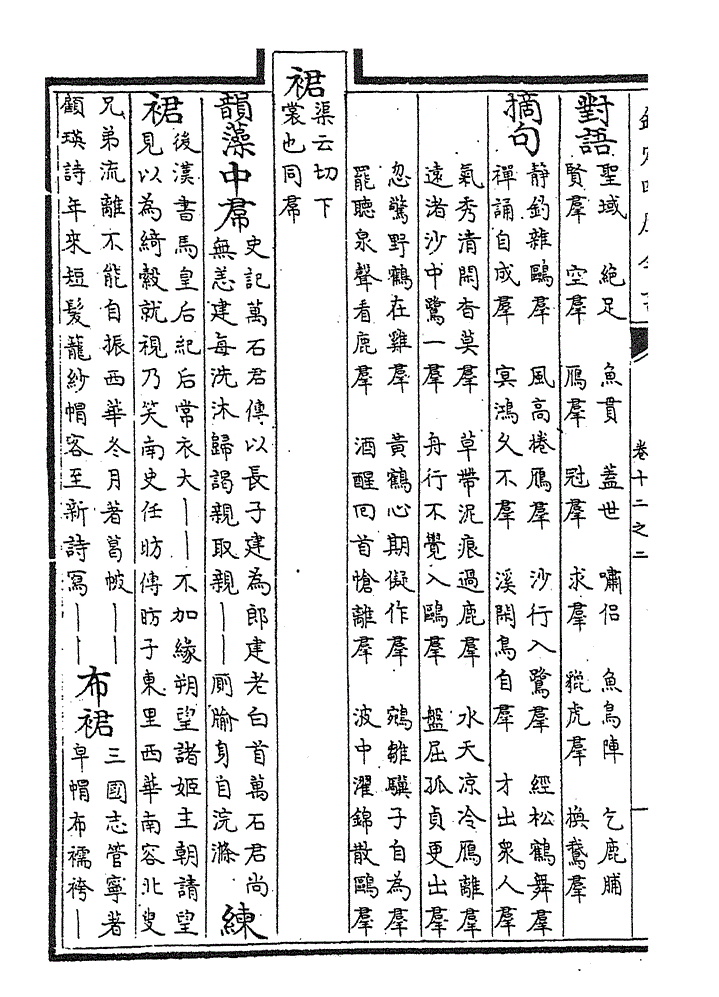 卷十二之二
對語
聖域 絶足 魚貫 蓋世 嘯侣 魚鳥陣 乞鹿脯
賢羣 空羣 鴈羣 冠羣 求羣 貔虎羣 換鵞羣
摘句
静釣雜鷗羣 風高捲鴈羣 沙行入鷺羣 經松鶴舞羣
禪誦自成羣 冥鴻久不羣 溪閑鳥自羣 才出衆人羣
氣秀清閑杳莫羣 草帶泥痕過鹿羣 水天凉冷鴈離羣
遠渚沙中鷺一羣 舟行不覺入鷗羣 盤屈孤貞更出羣
忽驚野鶴在雞羣 黄鶴心期儗作羣 鵷雛驥子自為羣
罷聽泉聲看鹿羣 酒醒回首愴離羣 波中濯錦散鷗羣
裙
渠云切下
裳也同帬
韻藻中帬
史記萬石君傳以長子建為郎建老白首萬石君尚
無恙建每洗沐歸謁親取親——厠牏身自浣滌
練
裙
後漢書馬皇后紀后常衣大——不加緣朔望諸姬主朝請望
見以為綺縠就視乃笑南史任昉傳昉子東里西華南容北叟
兄弟流離不能自振西華冬月著葛帔——
顧瑛詩年來短髮籠紗帽客至新詩寫——
布裙
三國志管寧著
皁帽布襦袴—